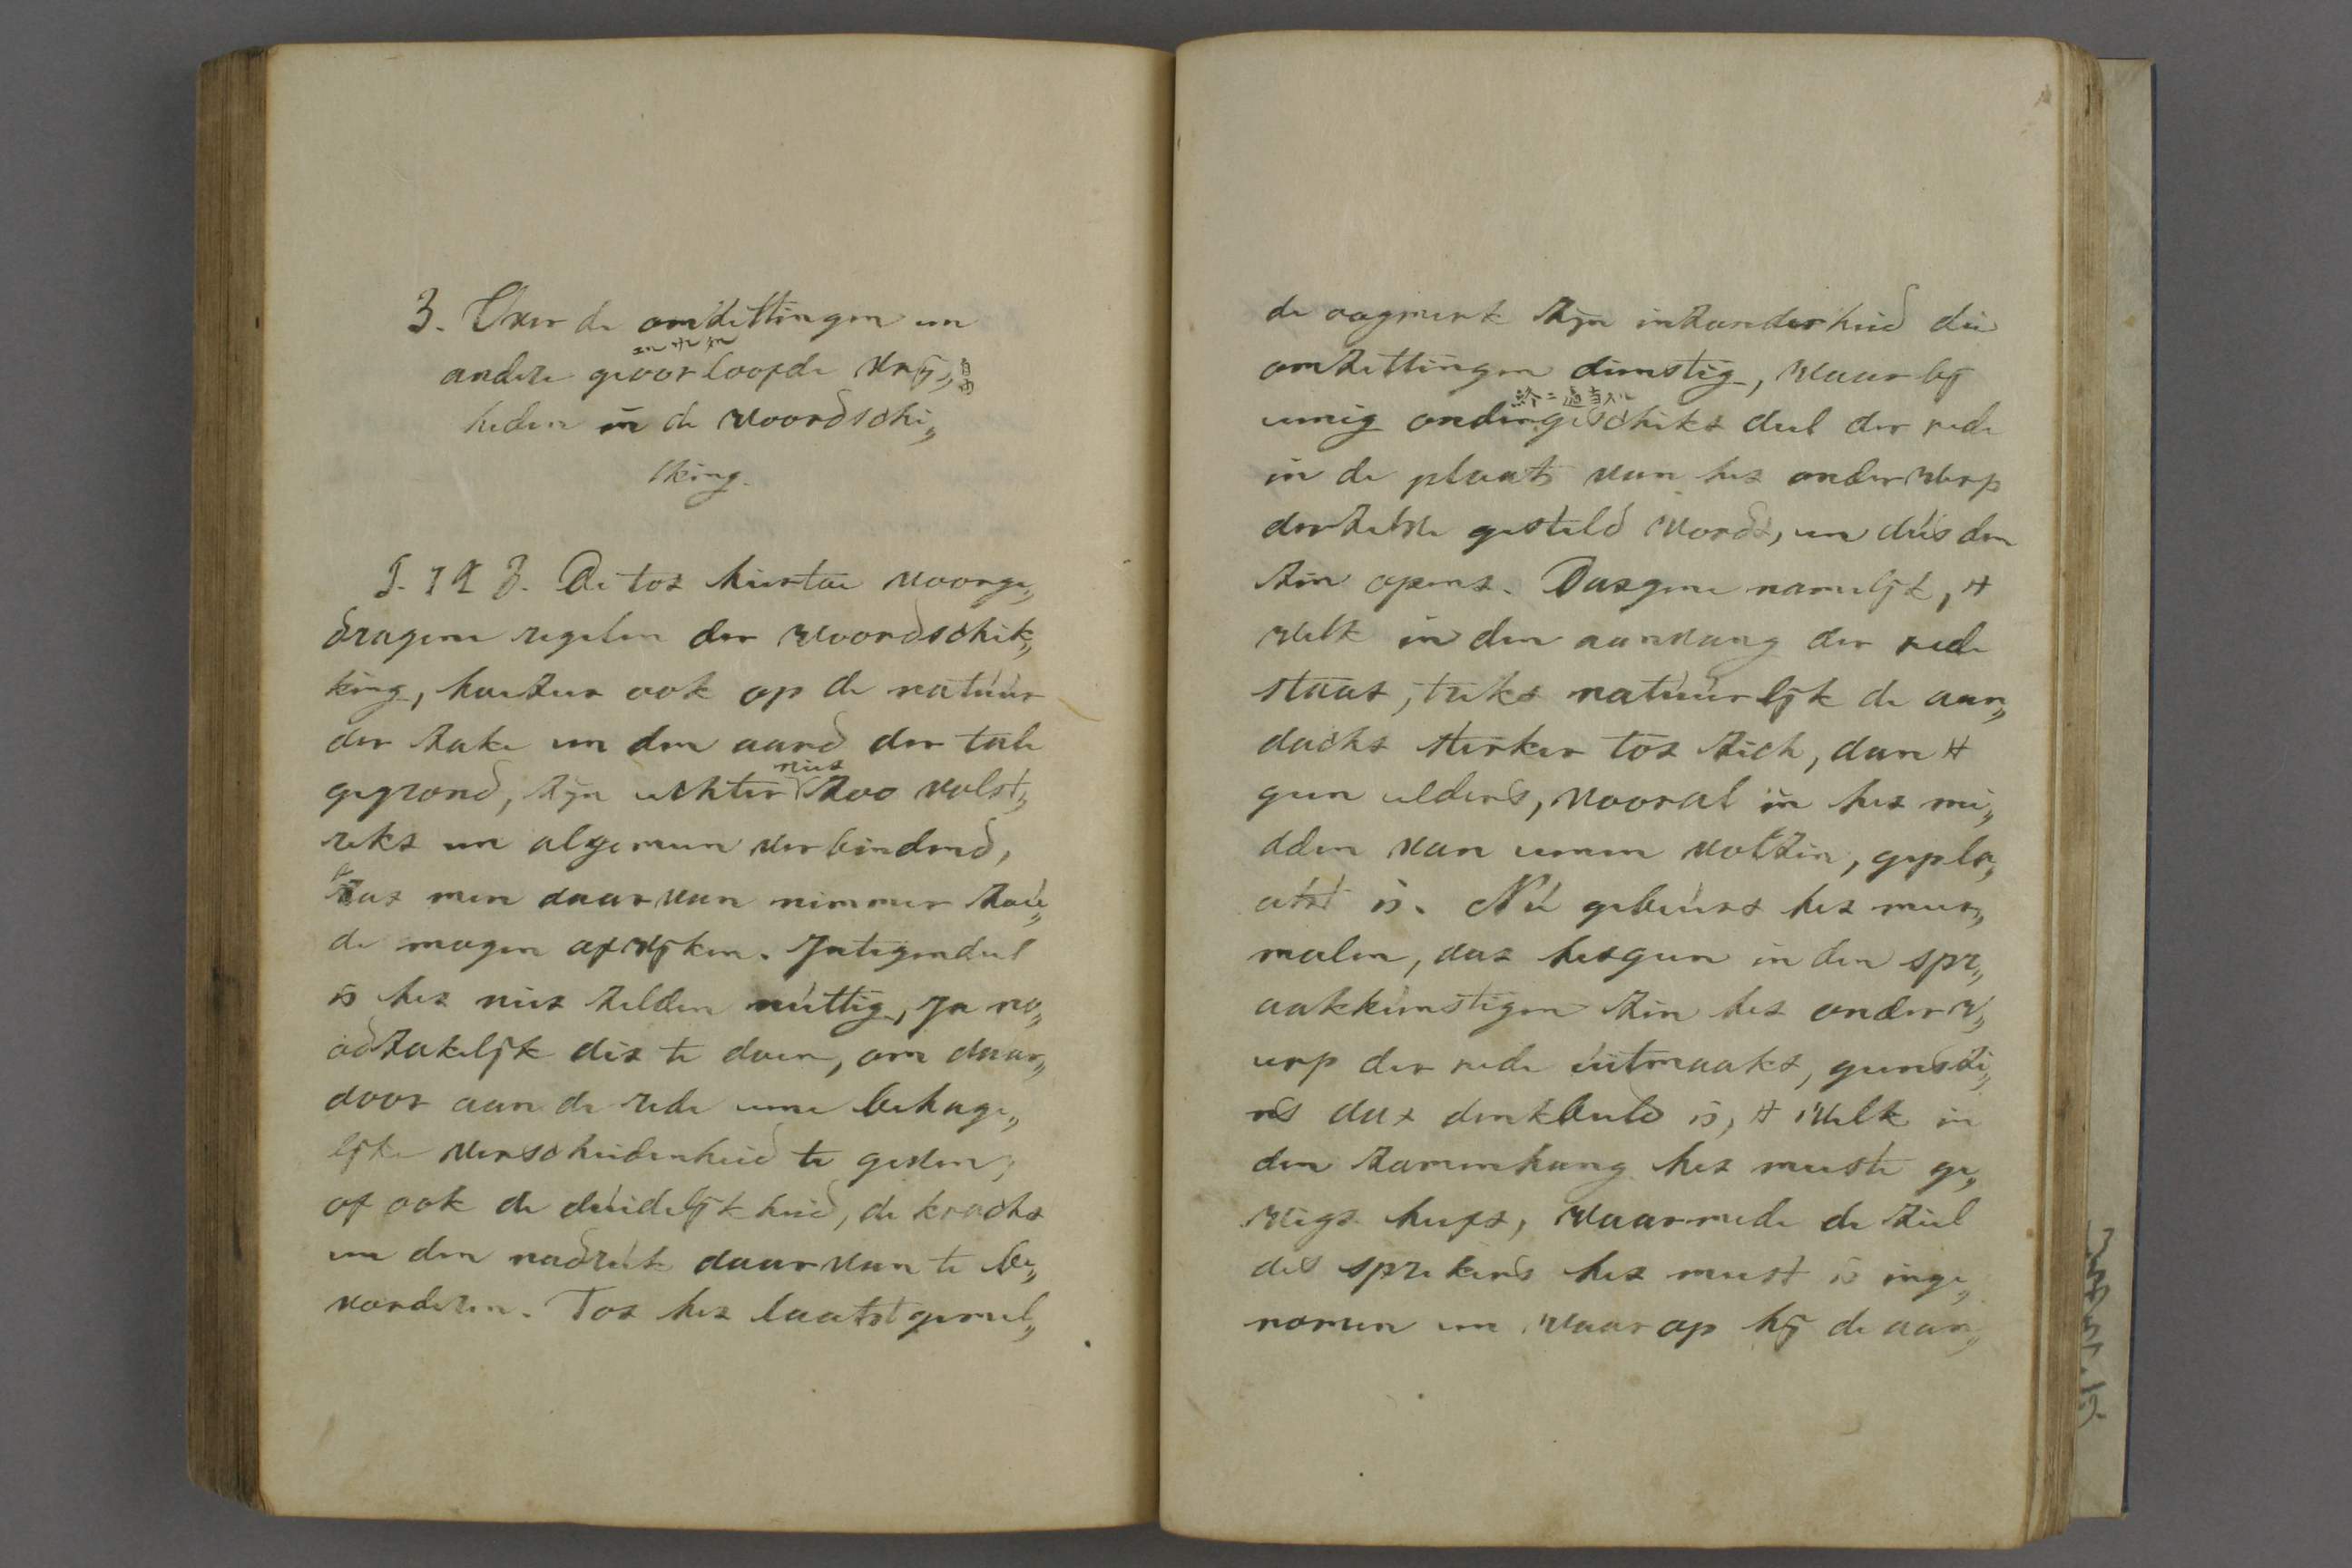 3. Over de omzettingen en
andere geoorloofde vrij„
自由
heden in de woordschi„
kking.
§. 123. De tot hiertoe voorge„
dragene regelen der woordschik„
king, hoezeer ook op de natuur
der zake en den aard der tale
gegrond, zijn echter niet zoo volst„
rekt en algemeen verbindend,
dat men daarvan nimmer zou„
de mogen afwijken. Integendeel
is het niet zelden nuttig, ja no„
odzakelijk dit te doen, om daar„
door aan de rede eene behage„
lijke verscheidenheid te geven;
of ook de duidelijkheid, de kracht
en den nadruk daarvan te be„
vorderen. Tot het laatstgemel„
de oogmerk zijn inzonderheid die
omzettingen dienstig, waarbij
eenig ondergeschikt deel der rede
in de plaats van het onderwerp
derzelve gesteld wordt, en dus den
zin opent. Datgene namelijk, 't
welk in den aanvang der rede
staat, trekt natuurlijk de aan„
dacht sterker tot zich, dan 't
geen elders, vooral in het mi„
dden van eenen volzin, gepla„
atst is. Nu gebeurt het meer„
malen, dat hetgeen in den spr„
aakkunstigen zin het onderw„
erp der rede uitmaakt, geenszi„
ns dat denkbeeld is, 't welk in
den zamenhang het meeste ge„
wigt heeft, waarmede de ziel
des sprekers het meest is inge„
nomen en waarop hij de aan„